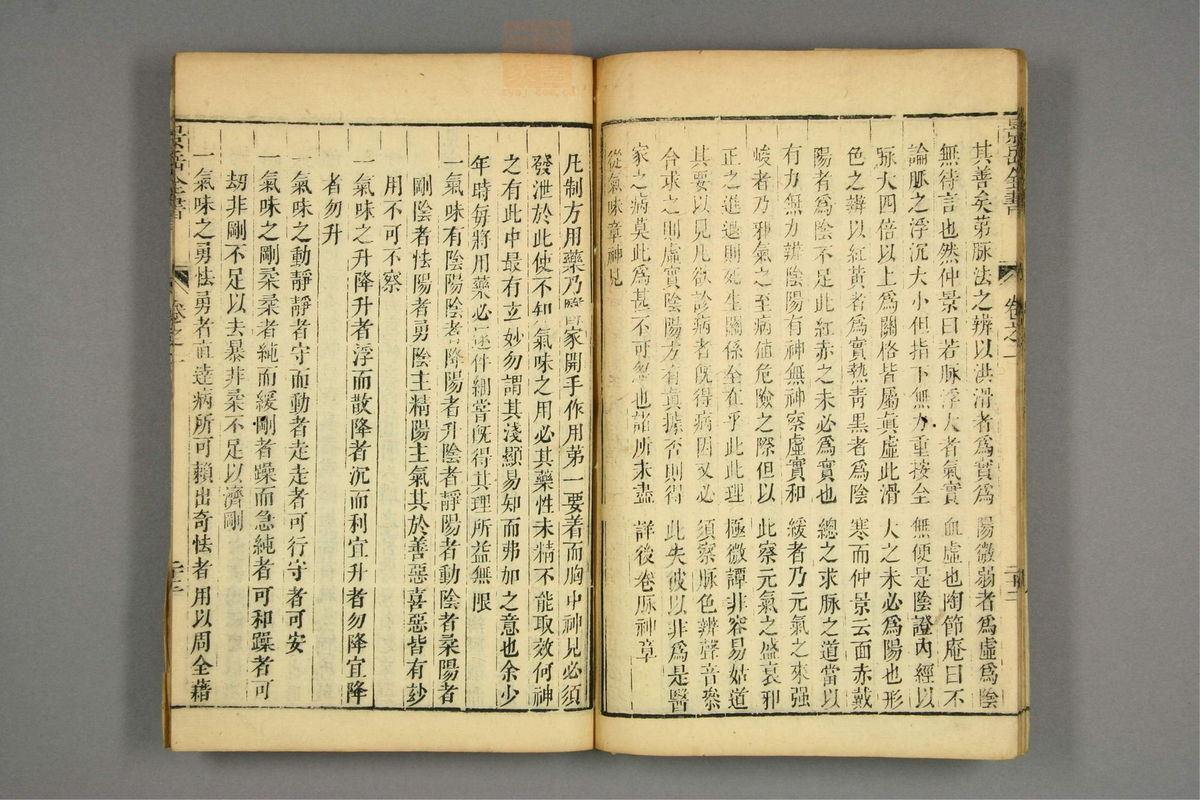 景岳全書
卷之一
二十二
其善矣第脉法之辨以洪滑者爲實爲陽微弱者爲虛爲陰
無待言也然仲景曰若脉浮大者氣實血虛也陶節庵曰不
論脉之浮沉大小但指下無力重按全無便是陰證內經以
脉大四倍以上爲關格皆屬眞虛此滑大之未必爲陽也形
色之辨以紅黃者爲實熱靑黑者爲陰寒而仲景云面赤戴
陽者爲陰不足此紅赤之未必爲實也總之求脉之道當以
有力無力辨陰陽有神無神察虛實和緩者乃元氣之來强
峻者乃邪氣之至病值危險之際但以此察元氣之盛衰邪
正之進退則死生關係全在乎此此理極微譚非容易姑道
其要以見凡欲診病者旣得病因又必須察脉色辨聲音叅
合求之則虛實陰陽方有眞據否則得此失彼以非爲是醫
家之病莫此爲甚不可忽也諸所未盡詳後卷脉神章
從氣味章神見
凡制方用藥乃醫家開手作用第一要着而胸中神見必須
發泄於此使不知氣味之用必其藥性未精不能取效何神
之有此中最有玄妙勿謂其淺顯易知而弗加之意也余少
年時每將用藥必逐件細嘗旣得其理所益無限
一氣味有陰陽陰者降陽者升陰者靜陽者動陰者柔陽者
剛陰者怯陽者勇陰主精陽主氣其於善惡喜惡皆有玅
用不可不察
一氣味之升降升者浮而散降者沉而利宜升者勿降宜降
者勿升
一氣味之動靜靜者守而動者走走者可行守者可安
一氣味之剛柔柔者純而緩剛者躁而急純者可和躁者可
刼非剛不足以去暴非柔不足以濟剛
一氣味之勇怯勇者直達病所可賴出奇怯者用以周全藉
景岳全書
卷之一
二十三